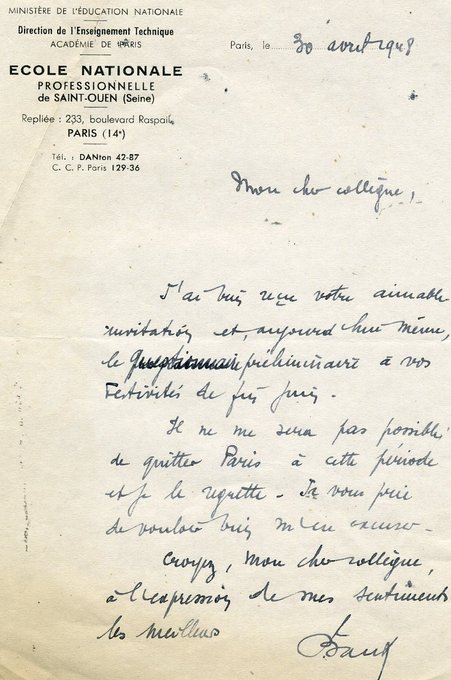 MINISTÈRE DE L'ÉDUCATION NATIONALE
Direction de l'Enseignement Technique
ACADÉMIE DE PARIS
ECOLE NATIONALE
PROFESSIONNELLE
de SAINT-OUEN (Seine)
Repliée : 233, boulevard Raspail,
PARIS (14e)
Tél. : DANton 42-87
C. C. P. Paris 129-36
Paris, le 30 avril 1948
Mon cher collègue,
J'ai bien reçu votre aimable
invitation et, aujourd'hui même,
le questionnaire préliminaire à vos
festivités de fin juin.
Il ne me sera pas possible
de quitter Paris à cette période
et je le regrette - Je vous prie
de vouloir bien m'en excuser -
Croyez, mon cher collègue,
à l'expression de mes sentiments
les meilleurs